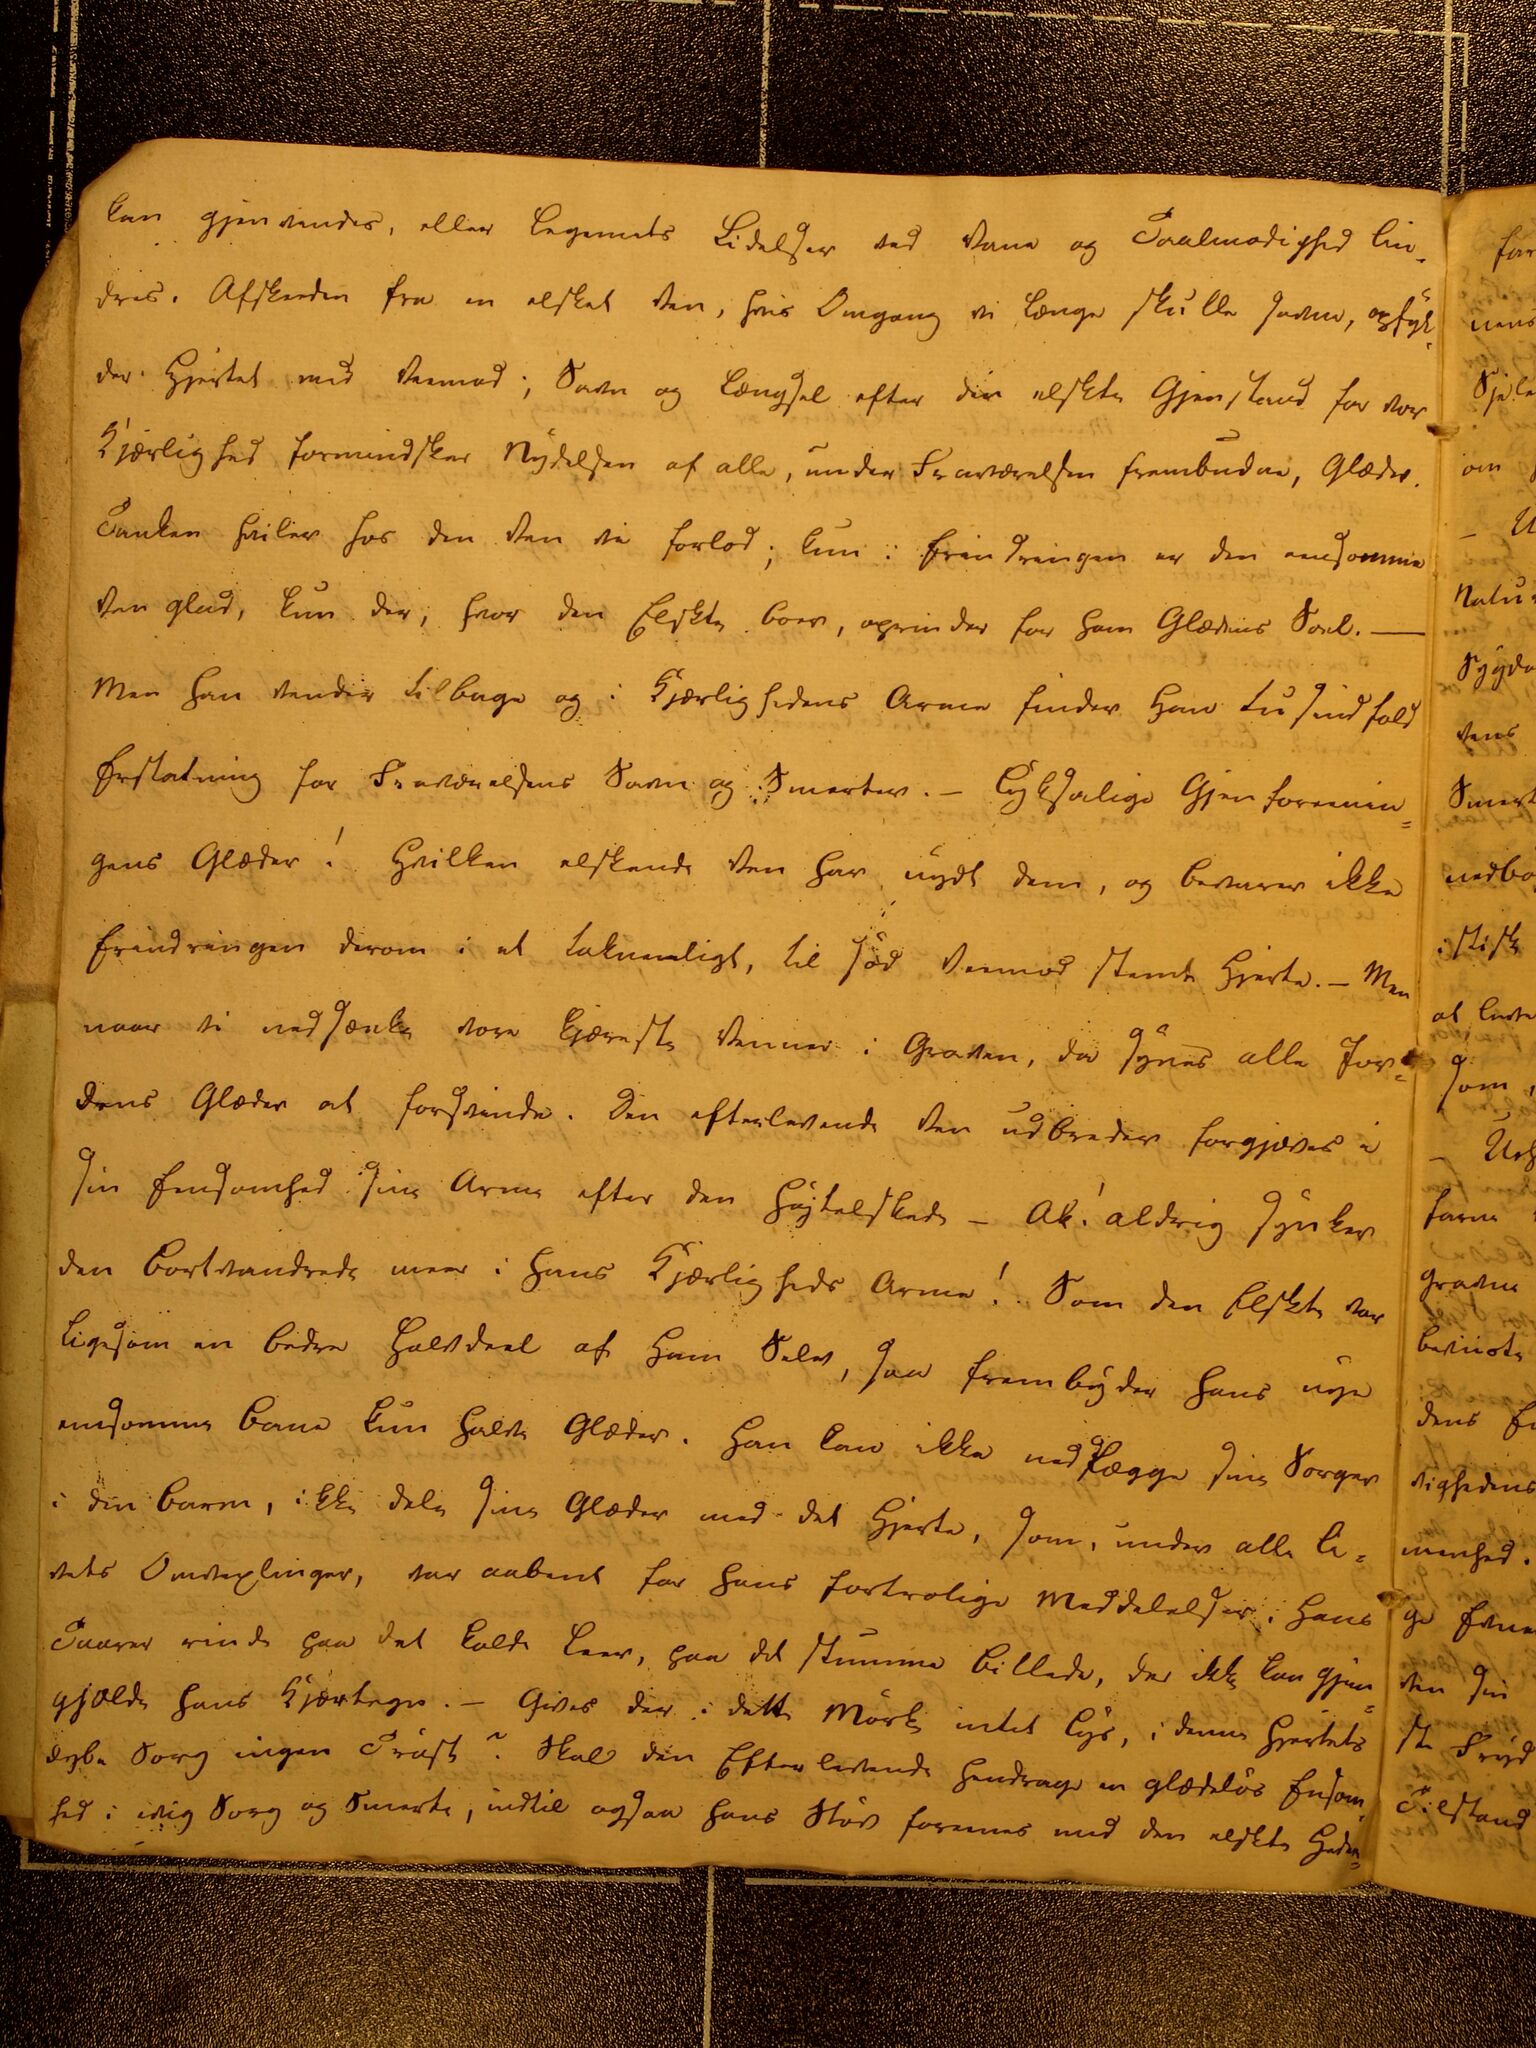 kan gjenvindes, eller Legemets Lidelser ved Vane og Taalmodighed lin-
dres. Afskeeden fra en elsket Ven, hvis Omgang vi længe skulle savne, opfyl-
der Hjertet med Veemod; Savn og Længsel efter den elskte Gjenstand for vor
Kjærlighed formindsker Nydelsen af alle, under Fraværelsen frembudne, Glæder.
Tanken hviler hos den Ven vi forlod; kun i Erindringen er den eensomme
Ven glad, kun der, hvor den Elskte boer, oprinder for ham Glædens Soel. —
Men han vender tilbage og i Kjærlighedens Arme finder Han tusindfold
Erstatning for Fraværelsens Savn og Smerter. — Lyksalige Gjenforenin=
gens Glæder! Hvilken elskende Ven har nydt dem, og bevarer ikke
Erindringen derom i et taknemligt, til sød Veemod stemt Hjerte. — Men
naar vi nedsænke vore kjæreste Venner i Graven, da synes alle Jor=
dens Glæder at forsvinde. Den efterlevende Ven udbreder forgjæves i
sin Eensomhed sine Arme efter den Højtelskede — Ak! aldrig synker
den bortvandrede meer i hans Kjærligheds Arme! Som den Elskte var
ligesom en bedre Halvdeel af Ham Selv, saa frembyder hans nye
eensomme Bane kun halve Glæder. Han kan ikke nedlægge sine Sorger
i den Barm, ikke dele sine Glæder med det Hjerte, som, under alle Li=
vets Omvexlinger, var aabent for hans fortrolige Meddelelser. Hans
Taarer rinde paa det kolde Leer, paa det stumme Billede, der ikke kan gjen=
gjælde hans Kjærtegn. — Gives der i dette Mörke intet Lys, i denne Hjertets
dybe Sorg ingen Tröst? Skal den Efterlevende hendrage en glædelös Ensom=
hed i evig Sorg og Smerte, indtil ogsaa hans Stöv forenes med den elskte Heden=
for
nens
Sjele
om
Natur
Sygdo
vens
Smert
nedbö
istisk
som,
farne
gravne
dens
vighedens
menhed.
ge
ven sin
ste Fryd
Tilstand